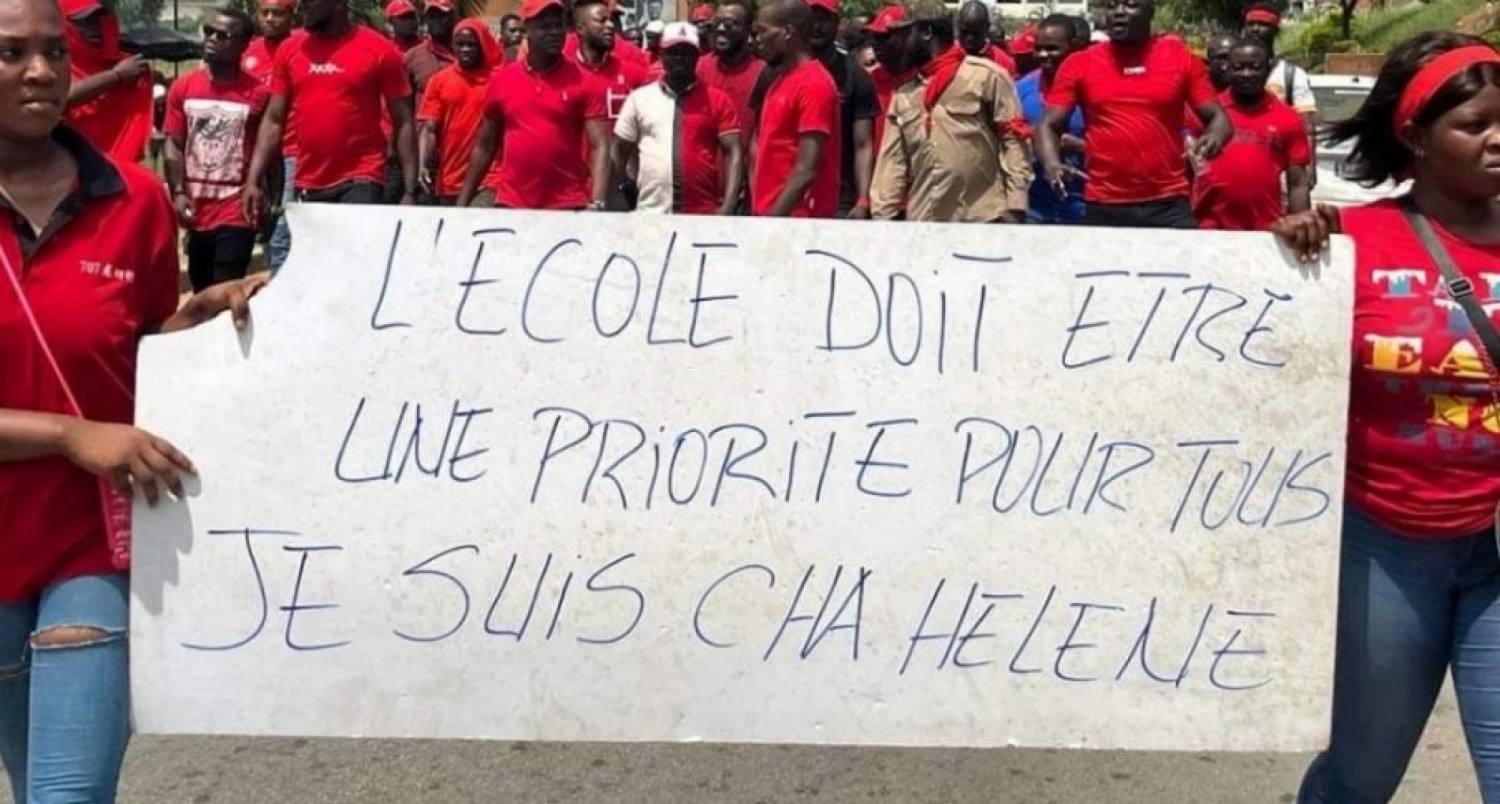 L'ECOLE DOIT ETRE
UNE PRIORITE POUR TOUS
JE SUIS CHA HELENE